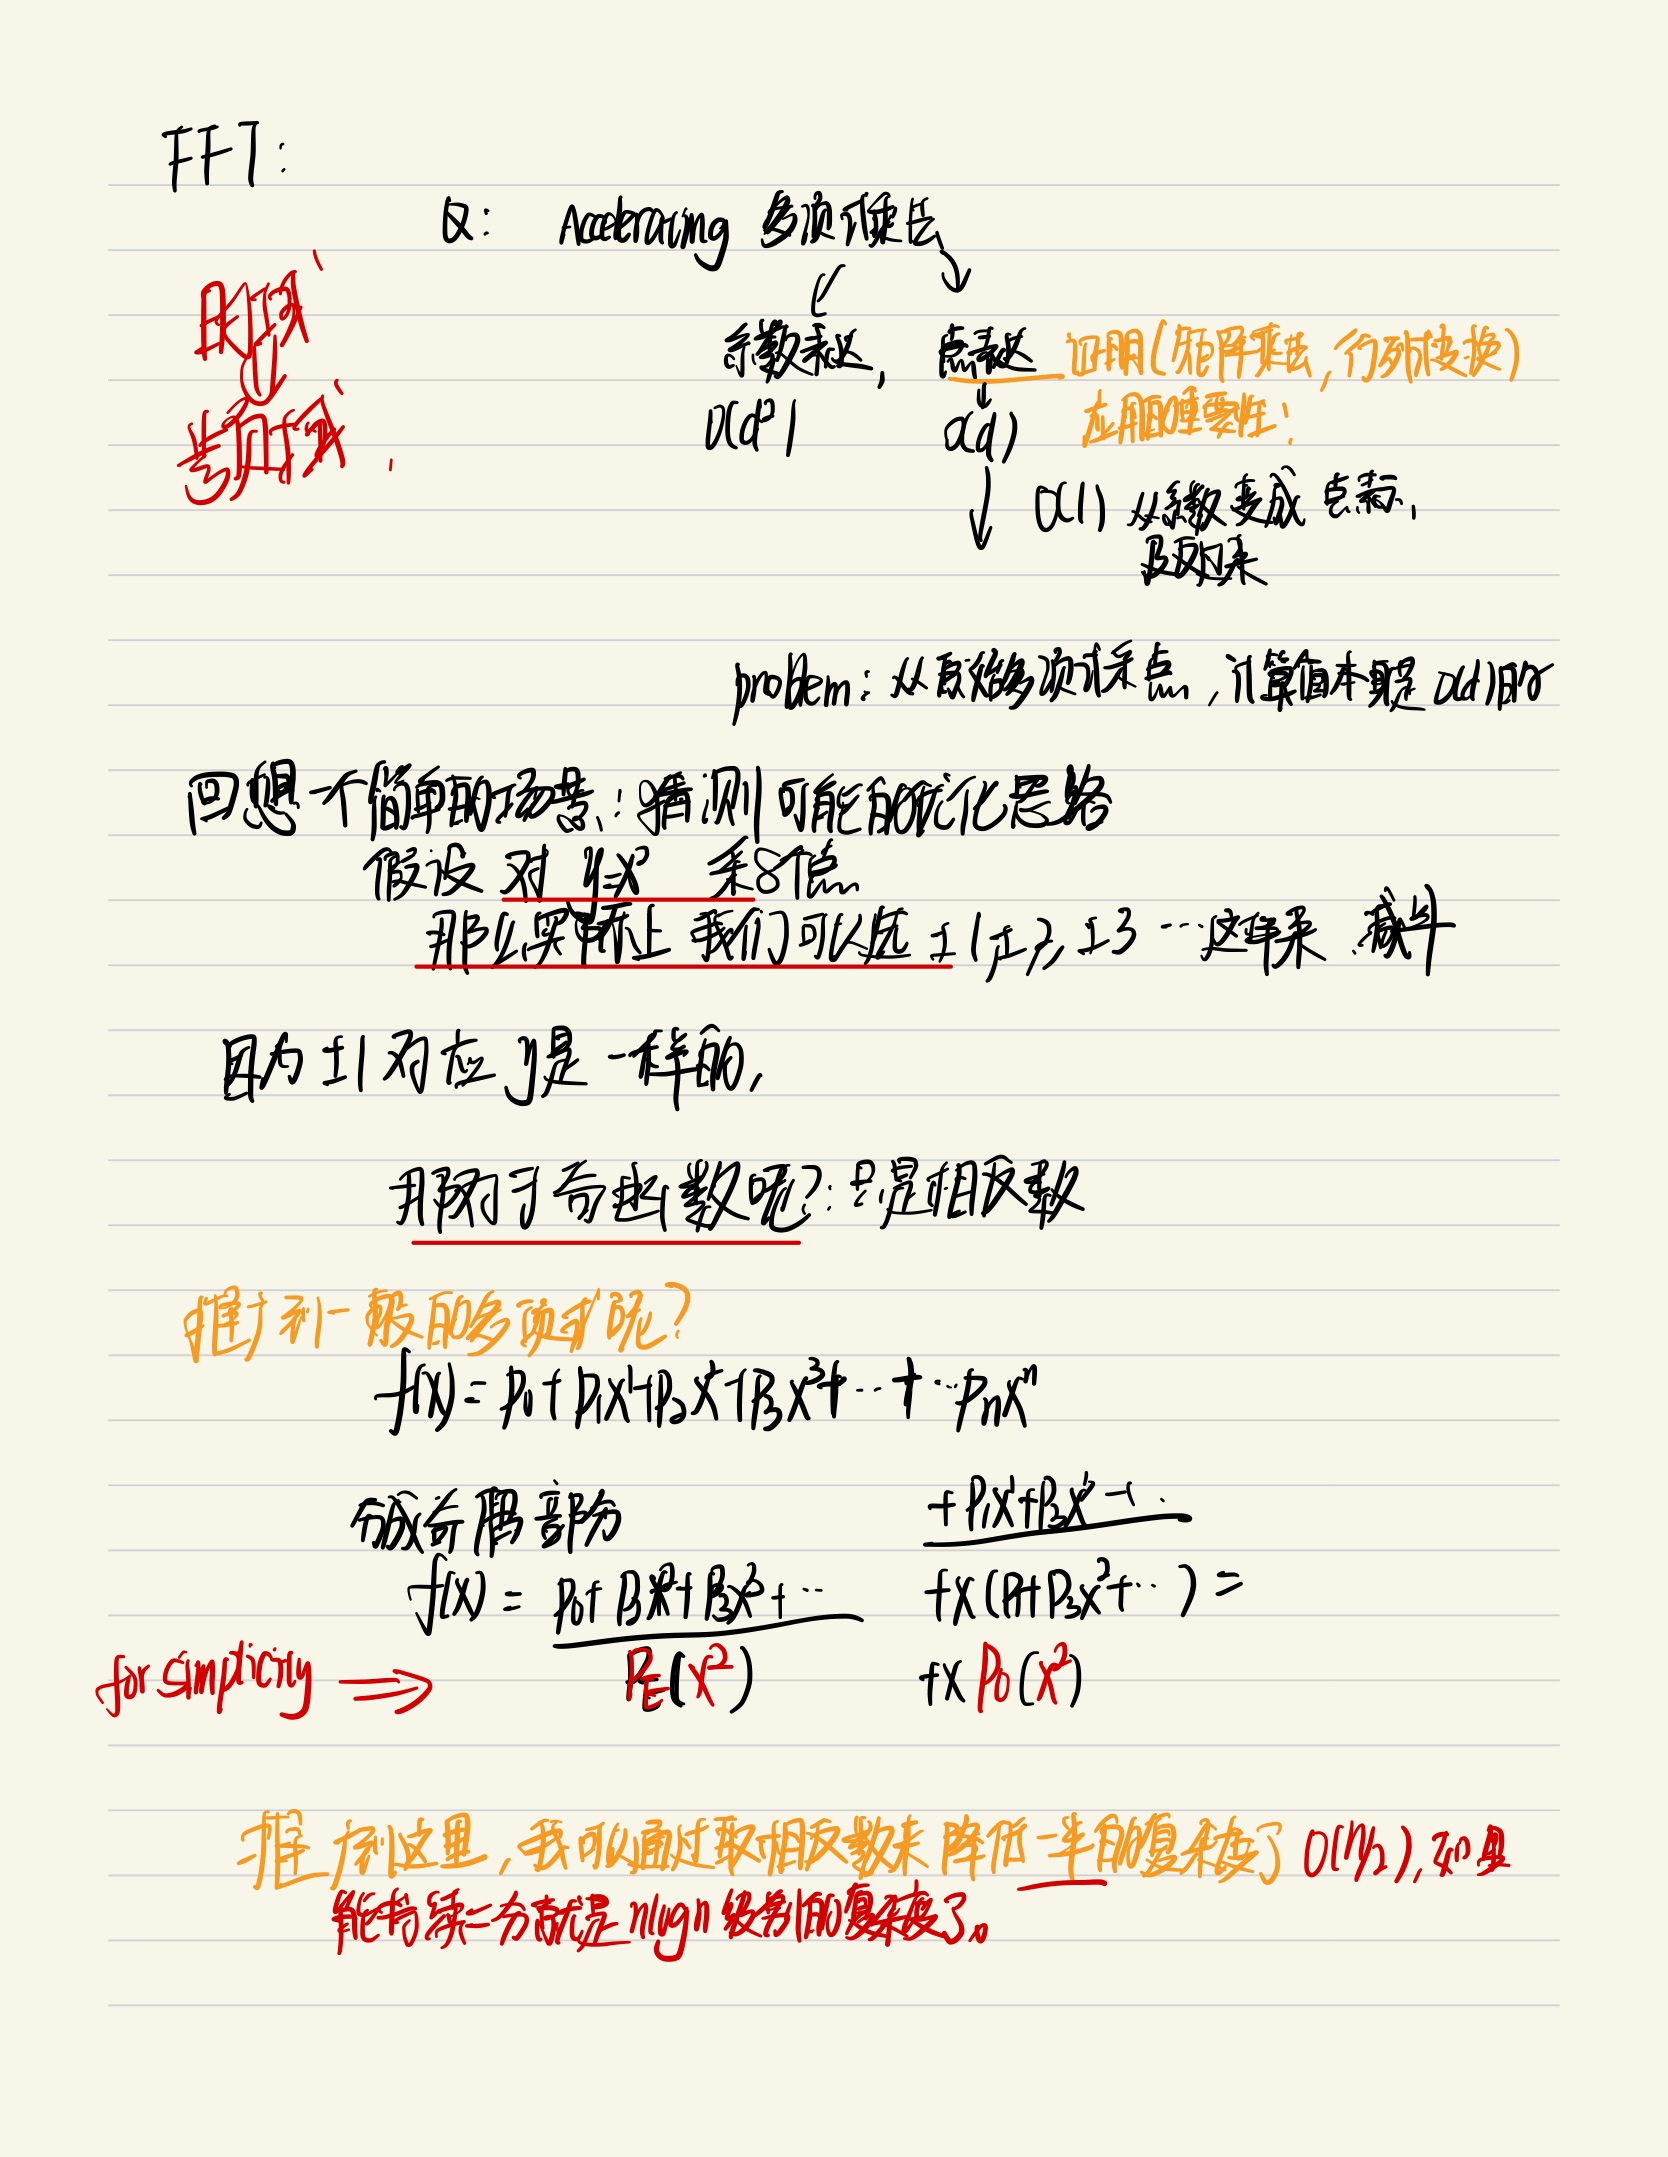 FFT:
Q: Accelerating 多项式乘法
时域
系数表达, 点表达 证明(矩阵乘法,行列变换)
O(d²) O(d) 应用的重要性:
O(1) 从系数变成 点表示,
及反过来
problem: 从原始多项式采点, 计算值本身是 O(d)的
回想一个简单的场景: 猜测可能的优化思路
假设 对 y=x² 采8个点
那么实际上 我们可以选 ±1,±2,±3 …这样来 减半
因为 ±1 对应 y是一样的,
那对于奇函数呢?: 只是相反数
推广到一般的多项式呢?
f(x) = p₀+p₁x¹+p₂x²+p₃x³+…+…pₙxⁿ
分成奇偶部分 +p₁x¹+p₃x³+…
f(x) = +x(p₁+p₃x²+…) =
for simplicity ⟹ P_E(x²) +x P_O(x²)
推广到这里, 我可以通过取相反数来 降低一半的复杂度了 O(n/2), 如果
能持续二分就是 nlogn 级别的复杂度了。